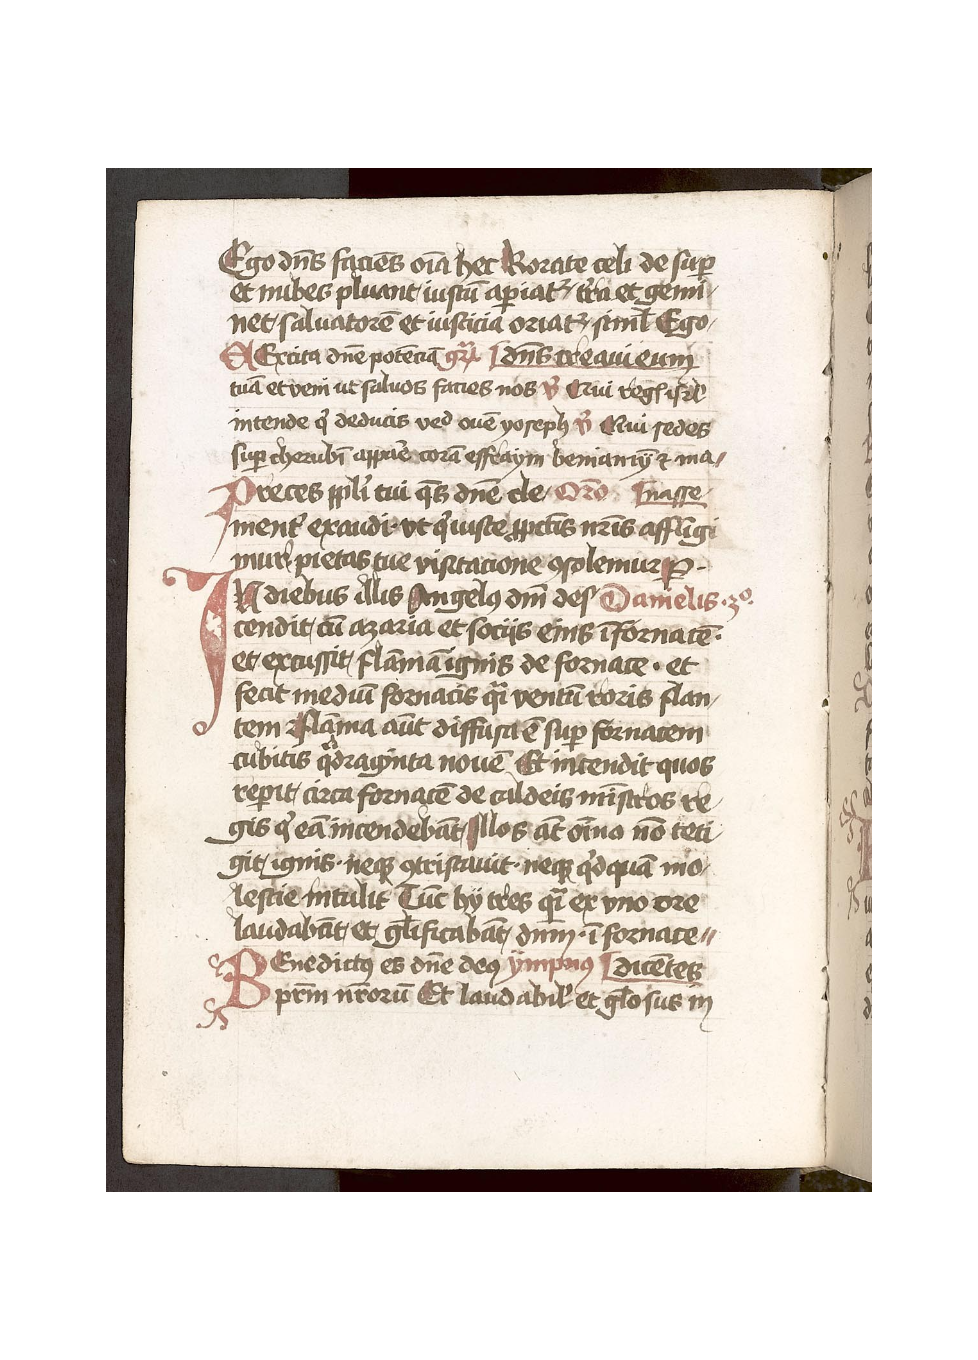 Ego dn̄s faciēs oīa hec Rorate celi de sup̄
et nubes pluant iustū ap̄iatꝫ tr̄a et gemi
net saluatorē et iusticia oriatꝫ siml̄ Ego
Excita dn̄e potēciā gr̄l dn̄s creaui eum
tuā et veni ut saluos facies nos v̄ Qui reḡ isrl̄
intende q̄ deducis velꝰ ouē yoseph v̄ Qui sedes
sup̄ cherubī appar̄e corā effraym beniamȳ ⁊ ma
Preces ppl̄i tui q̄s dn̄e cle Oro Inasse
ment̄ exaudi ut q̄ iuste p̄ pctīs nr̄is affligi
mur pietas tue visitacione ꝯsolemur P
IN diebus illis Angelꝰ dnī des Danielis 3ͦ
cendit cū azaria et socijs eius ī fornacē
et excussit flāmā ignis de fornace et
fecit mediū fornacis q̄i ventū roris flan
tem Flāma aūt diffusa ē sup̄ fornacem
cubitis q̄draginta nouē Et incendit quos
rep̄it circa fornacē de caldeis mīstros re
gis q̄ eā incendebāt Illos aūt oīno nō teti
git ignis neqꝫ ꝯtristauit neqꝫ q̄dquā mo
lestie intulit Tūc hij tres q̄i ex vno ore
laudabāt et gl̄ificabāt dnm̄ ī fornace
BEnedictꝰ es dn̄e deꝰ ympnꝰ dicētes
pr̄m nr̄orū Et laudabil̄ et gl̄osus in